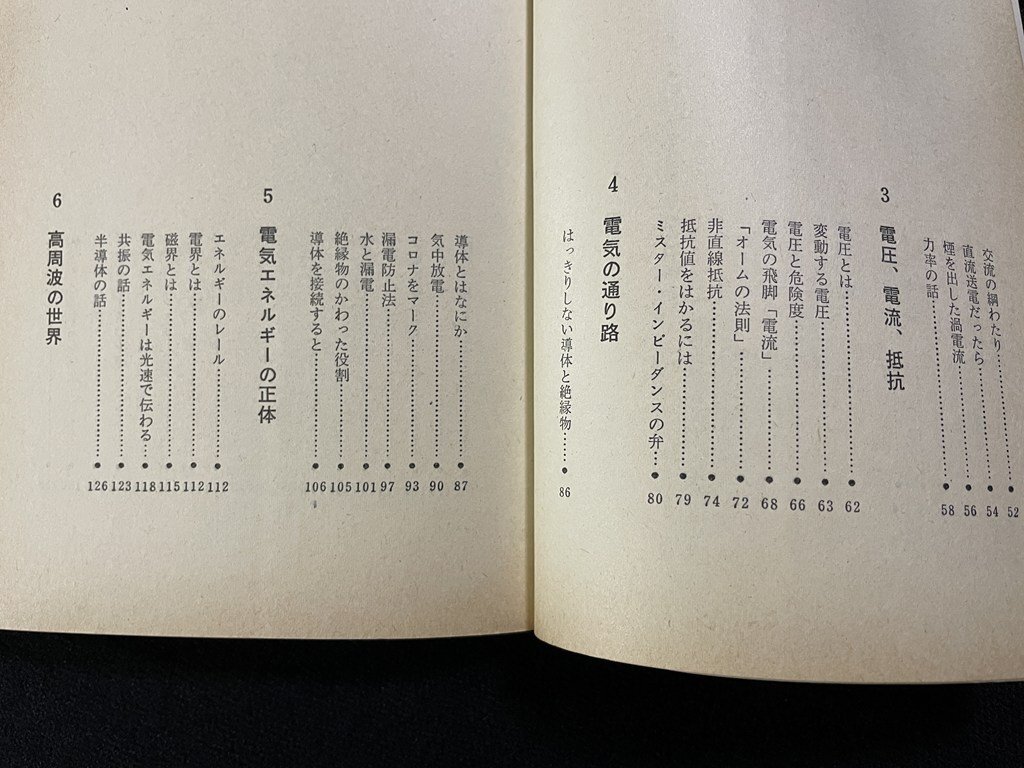 交流の綱わたり……………52
直流送電だったら……………54
煙を出した渦電流……………56
力率の話……………58
3 電圧、電流、抵抗
電圧とは……………62
変動する電圧……………63
電圧と危険度……………66
電気の飛脚「電流」……………68
「オームの法則」……………72
非直線抵抗……………74
抵抗値をはかるには……………79
ミスター・インピーダンスの弁……80
4 電気の通り路
はっきりしない導体と絶縁物……86
導体とはなにか……………87
気中放電……………90
コロナをマーク……………93
漏電防止法……………97
水と漏電……………101
絶縁物のかわった役割……………105
導体を接続すると……………106
5 電気エネルギーの正体
エネルギーのレール……………112
電界とは……………112
磁界とは……………115
電気エネルギーは光速で伝わる……118
共振の話……………123
半導体の話……………126
6 高周波の世界